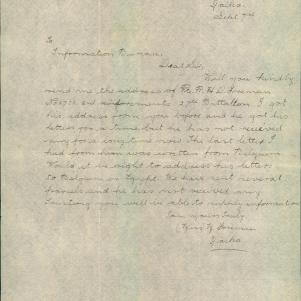 Yalka
Sept 7th
To
Information Bureau.
Dear Sir,
Will you kindly
send me the address of Pte. R. H. L. Foreman
6th reinforcements 27th Battalion. I got
his address from you before and he got his
letters for a time but he has not received
any for a long time now. The last letter I
had from him was written from Belgium
Would it be right to address his letters
to Belgium or Egypt. We have sent several
parcels and he has not received any
Trusting you will be able to supply information
I am yours truly
(Miss) Foreman
Yalka